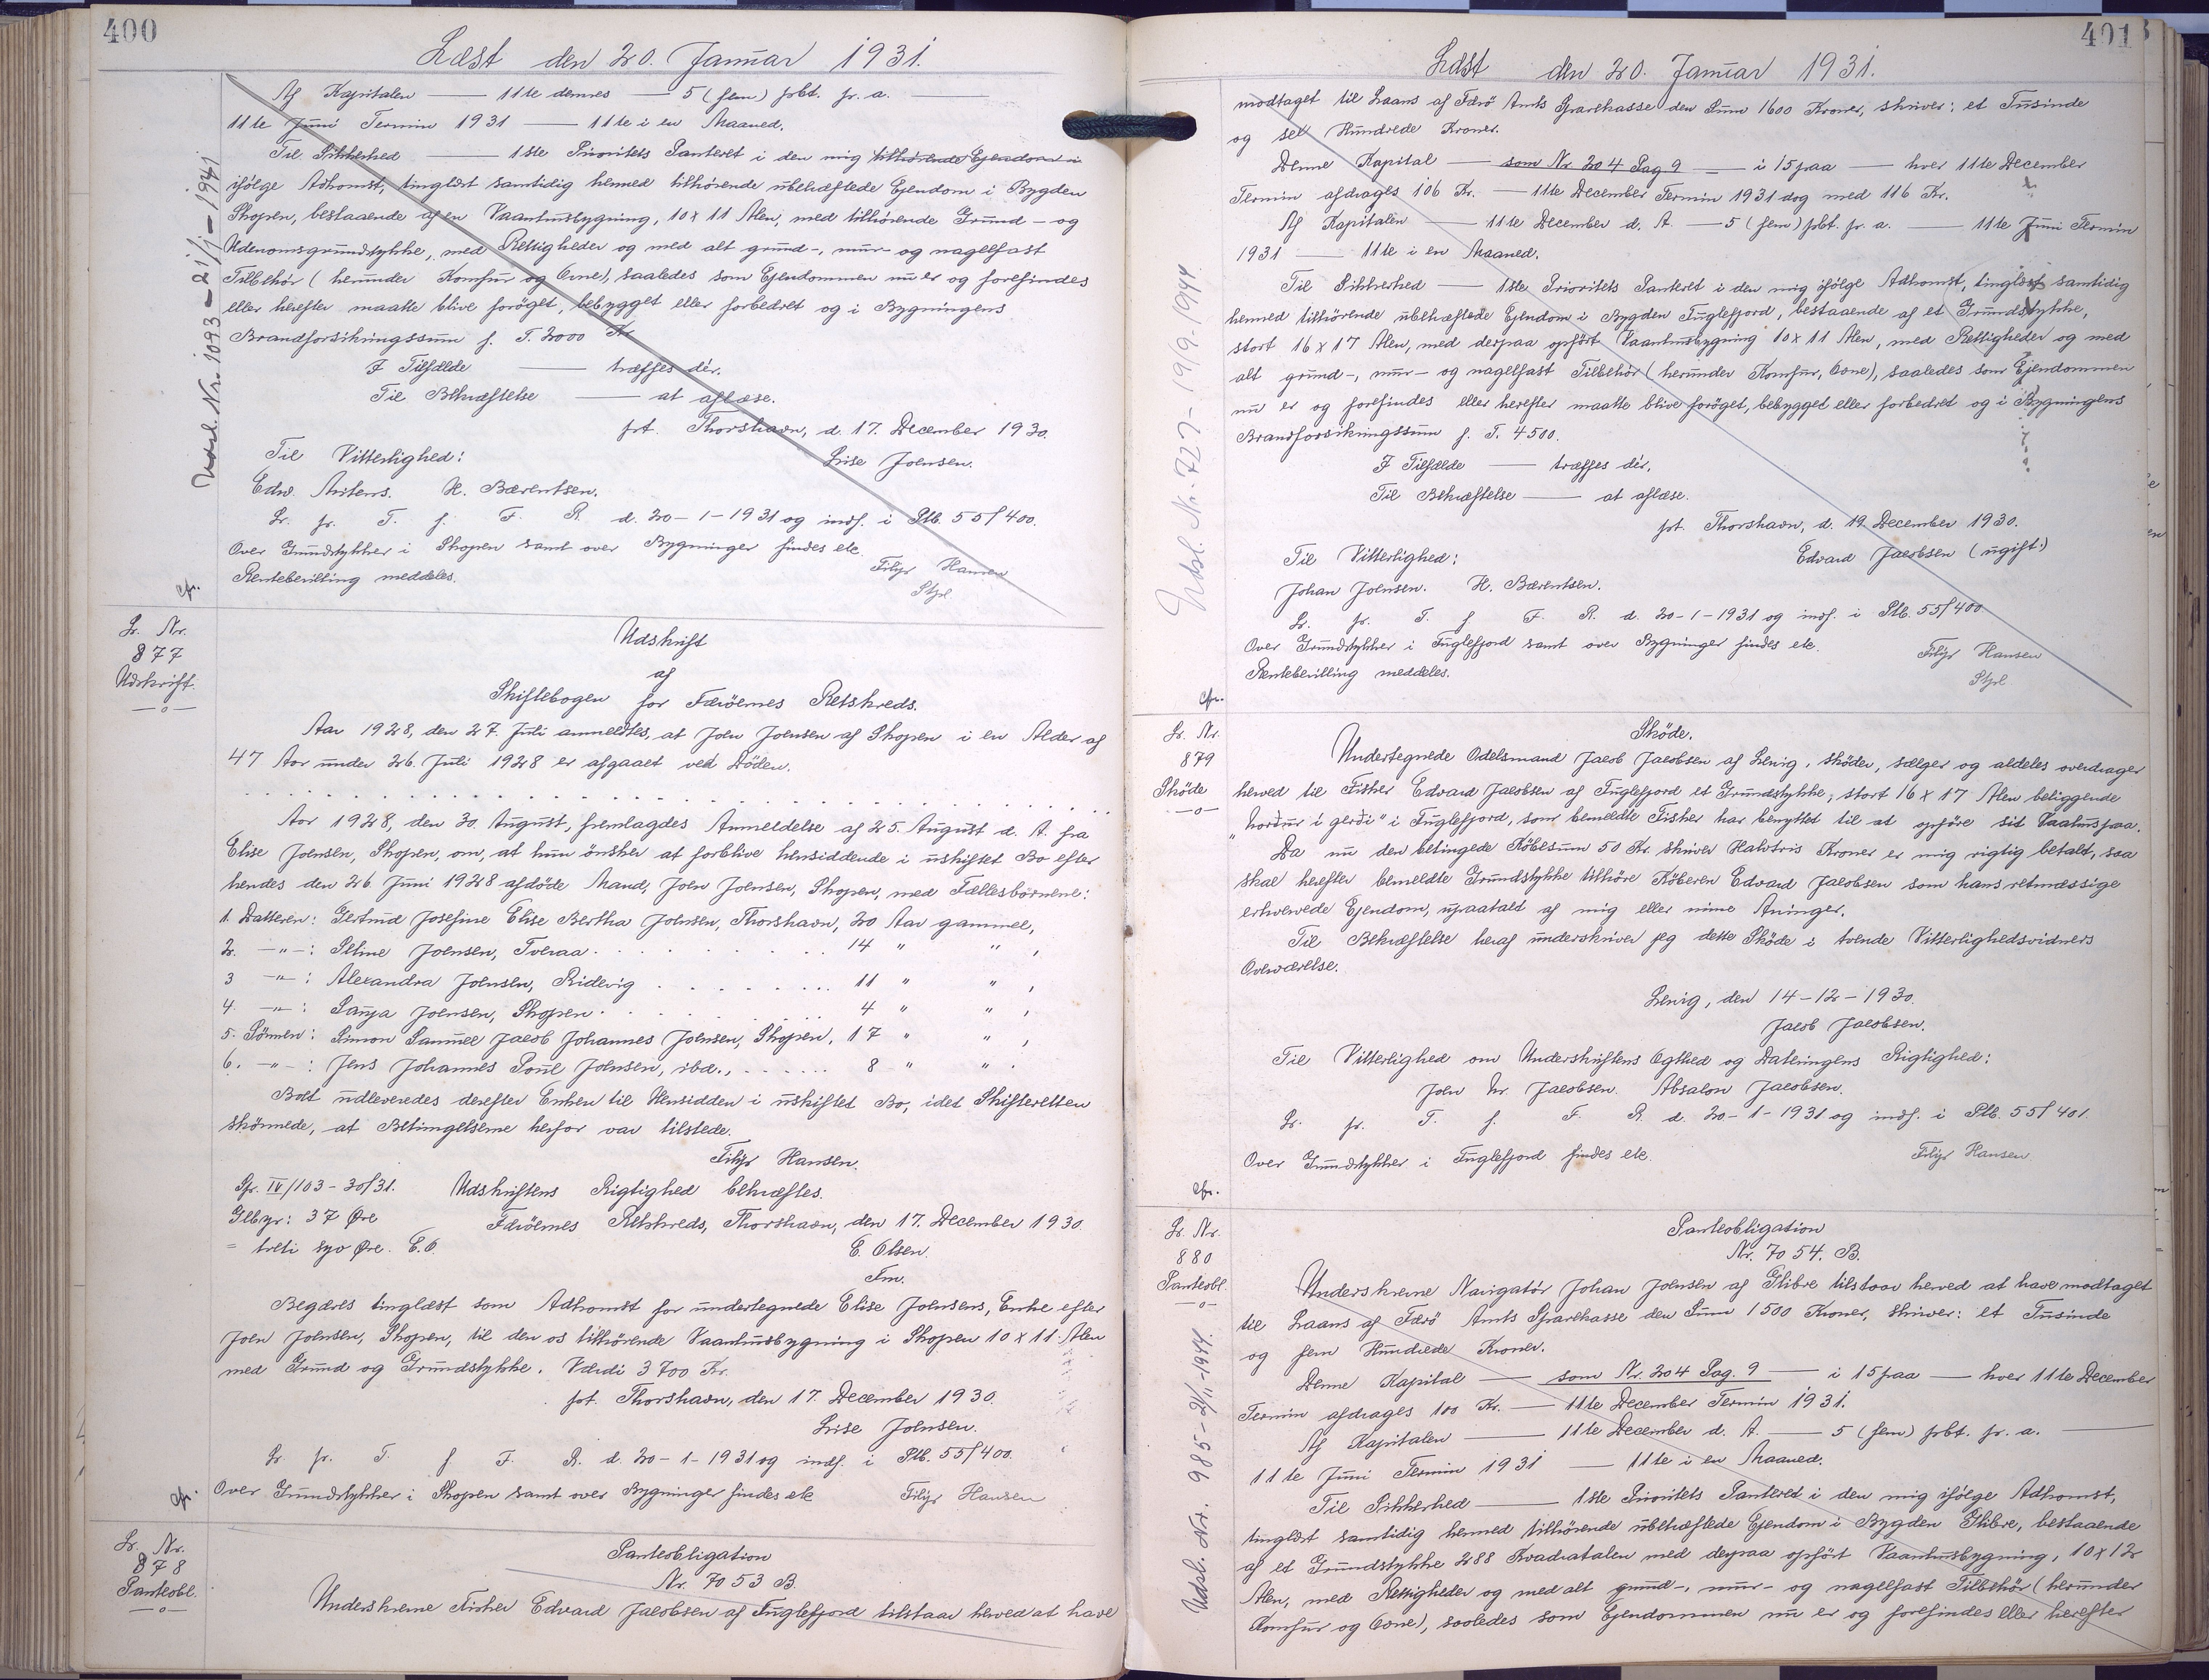 400
Læst den 20. Januar 1931.
Af Kapitalen — 11te dennes — 5 (fem) pCt. p. a. —
11te Juni Termin 1931 — 11te i en Maaned.
Til Sikkerhed — 1ste Prioritets Panteret i den mig tilhørende Ejendom i
ifölge Adkomst, tinglæst samtidig hermed tilhörende ubehæftede Ejendom i Bygden
Skopen, bestaaende af en Vaaningsbygning, 10 x 11 Alen, med tilhörende Grund- og
Udenomsgrundstykke, med Rettigheder og med alt grund-, mur- og nagelfast
Tilbehör (herunder Komfur og Ovne), saaledes som Ejendommen nu er og forefindes
eller herefter maatte blive foröget, bebygget eller forbedret og i Bygningens
Brandforsikringssum f. T. 2000 Kr.
I Tilfælde — træffes dér.
Til Bekræftelse — at aflæse.
pt. Thorshavn, d. 17. December 1930.
Til Vitterlighed: Lise Joensen.
Edw. Mitens. H. Bærentsen.
Lr. pr. T. f. F. R. d. 20-1-1931 og indf. i Ptb. 55/400.
Over Grundstykker i Skopen samt over Bygninger findes etc.
Rentebevilling meddeles. Filip Hansen
Stpl.
cfr.
Udsl. Nr. 1093 - 21/1 - 1941
Lr. Nr.
877
Udskrift.
Udskrift
af
Skiftebogen for Færöernes Retskreds.
Aar 1928, den 27. Juli anmeldtes, at Joen Joensen af Skopen i en Alder af
47 Aar under 26. Juli 1928 er afgaaet ved Döden.
Aar 1928, den 30. August, fremlagdes Anmeldelse af 25. August d. A. fra
Elise Joensen, Skopen, om, at hun önsker at forblive hensiddende i uskiftet Bo efter
hendes den 26. Juni 1928 afdöde Mand, Joen Joensen, Skopen, med Fællesbörnene:
1. Datteren: Gertrud Josefine Elise Bertha Joensen, Thorshavn, 20 Aar gammel,
2. -"-: Seline Joensen, Tveraa 14 " ",
3 -"-: Alexandra Joensen, Ridevig 11 " ",
4. -"-: Sanja Joensen, Skopen 4 " ",
5. Sönnen: Simon Samuel Jacob Johannes Joensen, Skopen, 17 " ",
6. -"-: Jens Johannes Poul Joensen, ibd., 8 " ".
Boet udleveredes derefter Enken til Hensidden i uskiftet Bo, idet Skifteretten
skönnede, at Betingelserne herfor var tilstede.
Filip Hansen.
Gfr. IV/103 - 30/31. Udskriftens Rigtighed bekræftes.
Glbyr: 37 Øre Færöernes Retskreds, Thorshavn, den 17. December 1930.
= treti syv Øre. E.O. E. Olsen.
Fm.
Begæres tinglæst som Adkomst for undertegnede Elise Joensens, Enke efter
Joen Joensen, Skopen, til den os tilhörende Vaaningsbygning i Skopen 10 x 11 Alen
med Grund og Grundstykke. Værdi 3700 Kr.
pt. Thorshavn, den 17. December 1930.
Lise Joensen.
Lr pr. T. f F. R. d. 20-1-1931 og indf. i Ptb. 55/400.
Over Grundstykker i Skopen samt over Bygninger findes etc Filip Hansen
cfr.
Lr. Nr.
878
Panteobl.
Panteobligation
Nr. 7053 B.
Underskrevne Fisker Edvard Jacobsen af Fuglefjord tilstaar herved at have
401
Læst den 20. Januar 1931.
modtaget til Laans af Færö Amts Sparekasse den Sum 1600 Kroner, skriver: et Tusinde
og seks Hundrede Kroner.
Denne Kapital — som Nr. 204 Pag 9 — i 15 paa — hver 11te December
Termin afdrages 106 Kr. — 11te December Termin 1931 dog med 116 Kr.
Af Kapitalen — 11te December d. A. — 5 (fem) pCt. p. a. — 11te Juni Termin
1931 — 11te i en Maaned.
Til Sikkerhed — 1ste Prioritets Panteret i den mig ifölge Adkomst, tinglæst samtidig
hermed tilhörende ubehæftede Ejendom i Bygden Fuglefjord, bestaaende af et Grundstykke,
stort 16 x 17 Alen, med derpaa opfört Vaaningsbygning 10 x 11 Alen, med Rettigheder og med
alt grund-, mur- og nagelfast Tilbehör (herunder Komfur, Ovne), saaledes som Ejendommen
nu er og forefindes eller herefter maatte blive foröget, bebygget eller forbedret og i Bygningens
Brandforsikringssum f. T. 4500.
I Tilfælde — træffes dér.
Til Bekræftelse — at aflæse.
pt. Thorshavn, d. 19. December 1930.
Til Vitterlighed: Edvard Jacobsen (ugift:)
Johan Joensen. H. Bærentsen.
Lr. pr. T. f F. R. d. 20-1-1931 og indf. i Ptb. 55/400
Over Grundstykker i Fuglefjord samt over Bygninger findes etc. Filip Hansen
Rentebevilling meddeles. Stpl
cfr.
Udsl. Nr. 727 - 19/9 - 1944
Lr. Nr.
879
Sköde
Sköde.
Undertegnede Odelsmand Jacob Jacobsen af Lervig, sköder, sælger og aldeles overdrager
herved til Fisker Edvard Jacobsen af Fuglefjord et Grundstykke, stort 16 x 17 Alen beliggende
"norður í gerði" i Fuglefjord, som bemeldte Fisker har benyttet til at opföre sit Vaahus paa.
Da nu den betingede Köbesum 50 Kr. skriver Halvtres Kroner er mig rigtig betalt, saa
skal herefter bemeldte Grundstykke tilhöre Köberen Edvard Jacobsen som hans retmæssige
erhvervede Ejendom, upaatalt af mig eller mine Arvinger.
Til Bekræftelse heraf underskriver jeg dette Sköde i tvende Vitterlighedsvidners
Overværelse.
Lervig, den 14-12-1930.
Jacob Jacobsen.
Til Vitterlighed om Underskriftens Ægthed og Dateringens Rigtighed:
Joen Jacobsen. Absalon Jacobsen.
Lr. pr. T. f. F. R. d. 20-1-1931 og indf. i Ptb. 55/401.
Over Grundstykker i Fuglefjord findes etc. Filip Hansen
cfr.
Lr. Nr.
880
Panteobl.
Panteobligation
Nr. 7054. B.
Underskrevne Navigatör Johan Joensen af Glibre tilstaar herved at have modtaget
til Laans af Færö Amts Sparekasse den Sum 1500 Kroner, skriver: et Tusinde
og fem Hundrede Kroner.
Denne Kapital — som Nr. 204 Pag. 9 — i 15 paa — hver 11te December
Termin afdrages 100 Kr. — 11te December Termin 1931.
Af Kapitalen — 11te December d. A. — 5 (fem) pCt. p. a. —
11te Juni Termin 1931 — 11te i en Maaned.
Til Sikkerhed — 1ste Prioritets Panteret i den mig ifölge Adkomst,
tinglæst samtidig hermed tilhörende ubehæftede Ejendom i Bygden Glibre, bestaaende
af et Grundstykke 288 Kvadratalen med derpaa opfört Vaaningsbygning, 10 x 12
Alen, med Rettigheder og med alt grund-, mur- og nagelfast Tilbehör (herunder
Komfur og Ovne), saaledes som Ejendommen nu er og forefindes eller herefter
Udsl. Nr. 985 - 21/11 - 1941.